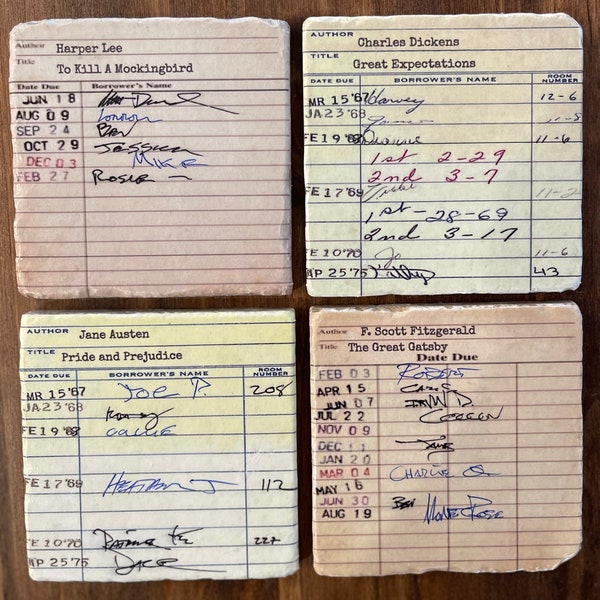 Author Harper Lee
Title To Kill A Mockingbird
Date Due Borrower's Name
JUN 18
AUG 09 London
SEP 24 Ben
OCT 29 Jessica
DEC 03 MIKE
FEB 27 ROSIE
AUTHOR Charles Dickens
TITLE Great Expectations
DATE DUE BORROWER'S NAME ROOM NUMBER
MR 15'67 Harvey 12-6
JA 23'68
FE 19'69 Dianne 11-6
1st 2-29
2nd 3-7
FE 17'69
1st - 28-69
2nd 3-17
FE 10'70 Jo 11-6
AP 25'75 43
AUTHOR Jane Austen
TITLE Pride and Prejudice
DATE DUE BORROWER'S NAME ROOM NUMBER
MR 15'67 JOE P. 208
JA 23'68
FE 19'69 CALLIE
FE 17'69 112
FE 10'70 227
AP 25'75
Author F. Scott Fitzgerald
Title The Great Gatsby
Date Due
FEB 03 ROBERT
APR 15
JUN 07
JUL 22
NOV 09
DEC 11
JAN 20
MAR 04 CHARLIE
MAY 16
JUN 30 Ben
AUG 19